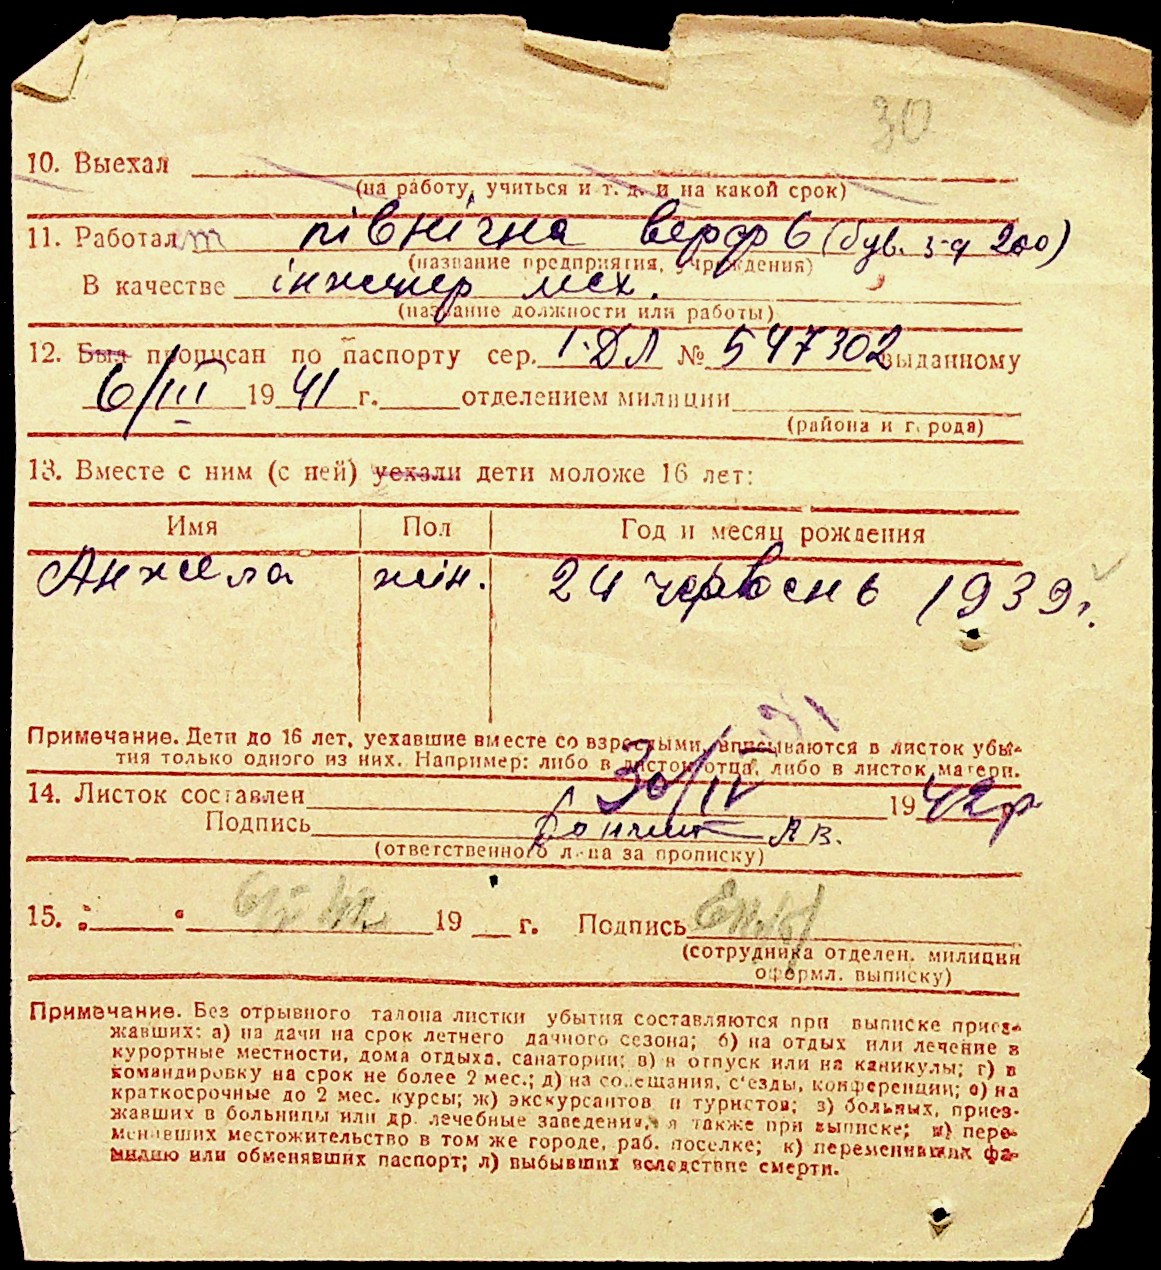 30
10. Выехал
(на работу, учиться и т. д. и на какой срок)
11. Работал північна верф6 (був. з-д 200)
(название предприятия, учреждения)
В качестве інженер мех.
(название должности или работы)
12. Был прописан по паспорту сер. I-ДЛ № 547302 выданному
6/III 1941 г. отделением милиции
(района и города)
13. Вместе с ним (с ней) уехали дети моложе 16 лет:
Имя Пол Год и месяц рождения
Анжела жін. 24 червень 1939 г.
Примечание. Дети до 16 лет, уехавшие вместе со взрослыми, вписываются в листок убы-
тия только одного из них. Например: либо в листок отца, либо в листок матери.
14. Листок составлен 30/IV 1942 р
Подпись А В.
(ответственного лица за прописку)
15. 19 г. Подпись
(сотрудника отделен. милиции
оформл. выписку)
Примечание. Без отрывного талона листки убытия составляются при выписке приез-
жавших: а) на дачи на срок летнего дачного сезона; б) на отдых или лечение в
курортные местности, дома отдыха, санатории; в) в отпуск или на каникулы; г) в
командировку на срок не более 2 мес.; д) на совещания, с'езды, конференции; е) на
краткосрочные до 2 мес. курсы; ж) экскурсантов и туристов; з) больных, приез-
жавших в больницы или др. лечебные заведения, а также при выписке; и) пере-
менивших местожительство в том же городе, раб. поселке; к) переменивших фа-
милию или обменявших паспорт; л) выбывших вследствие смерти.